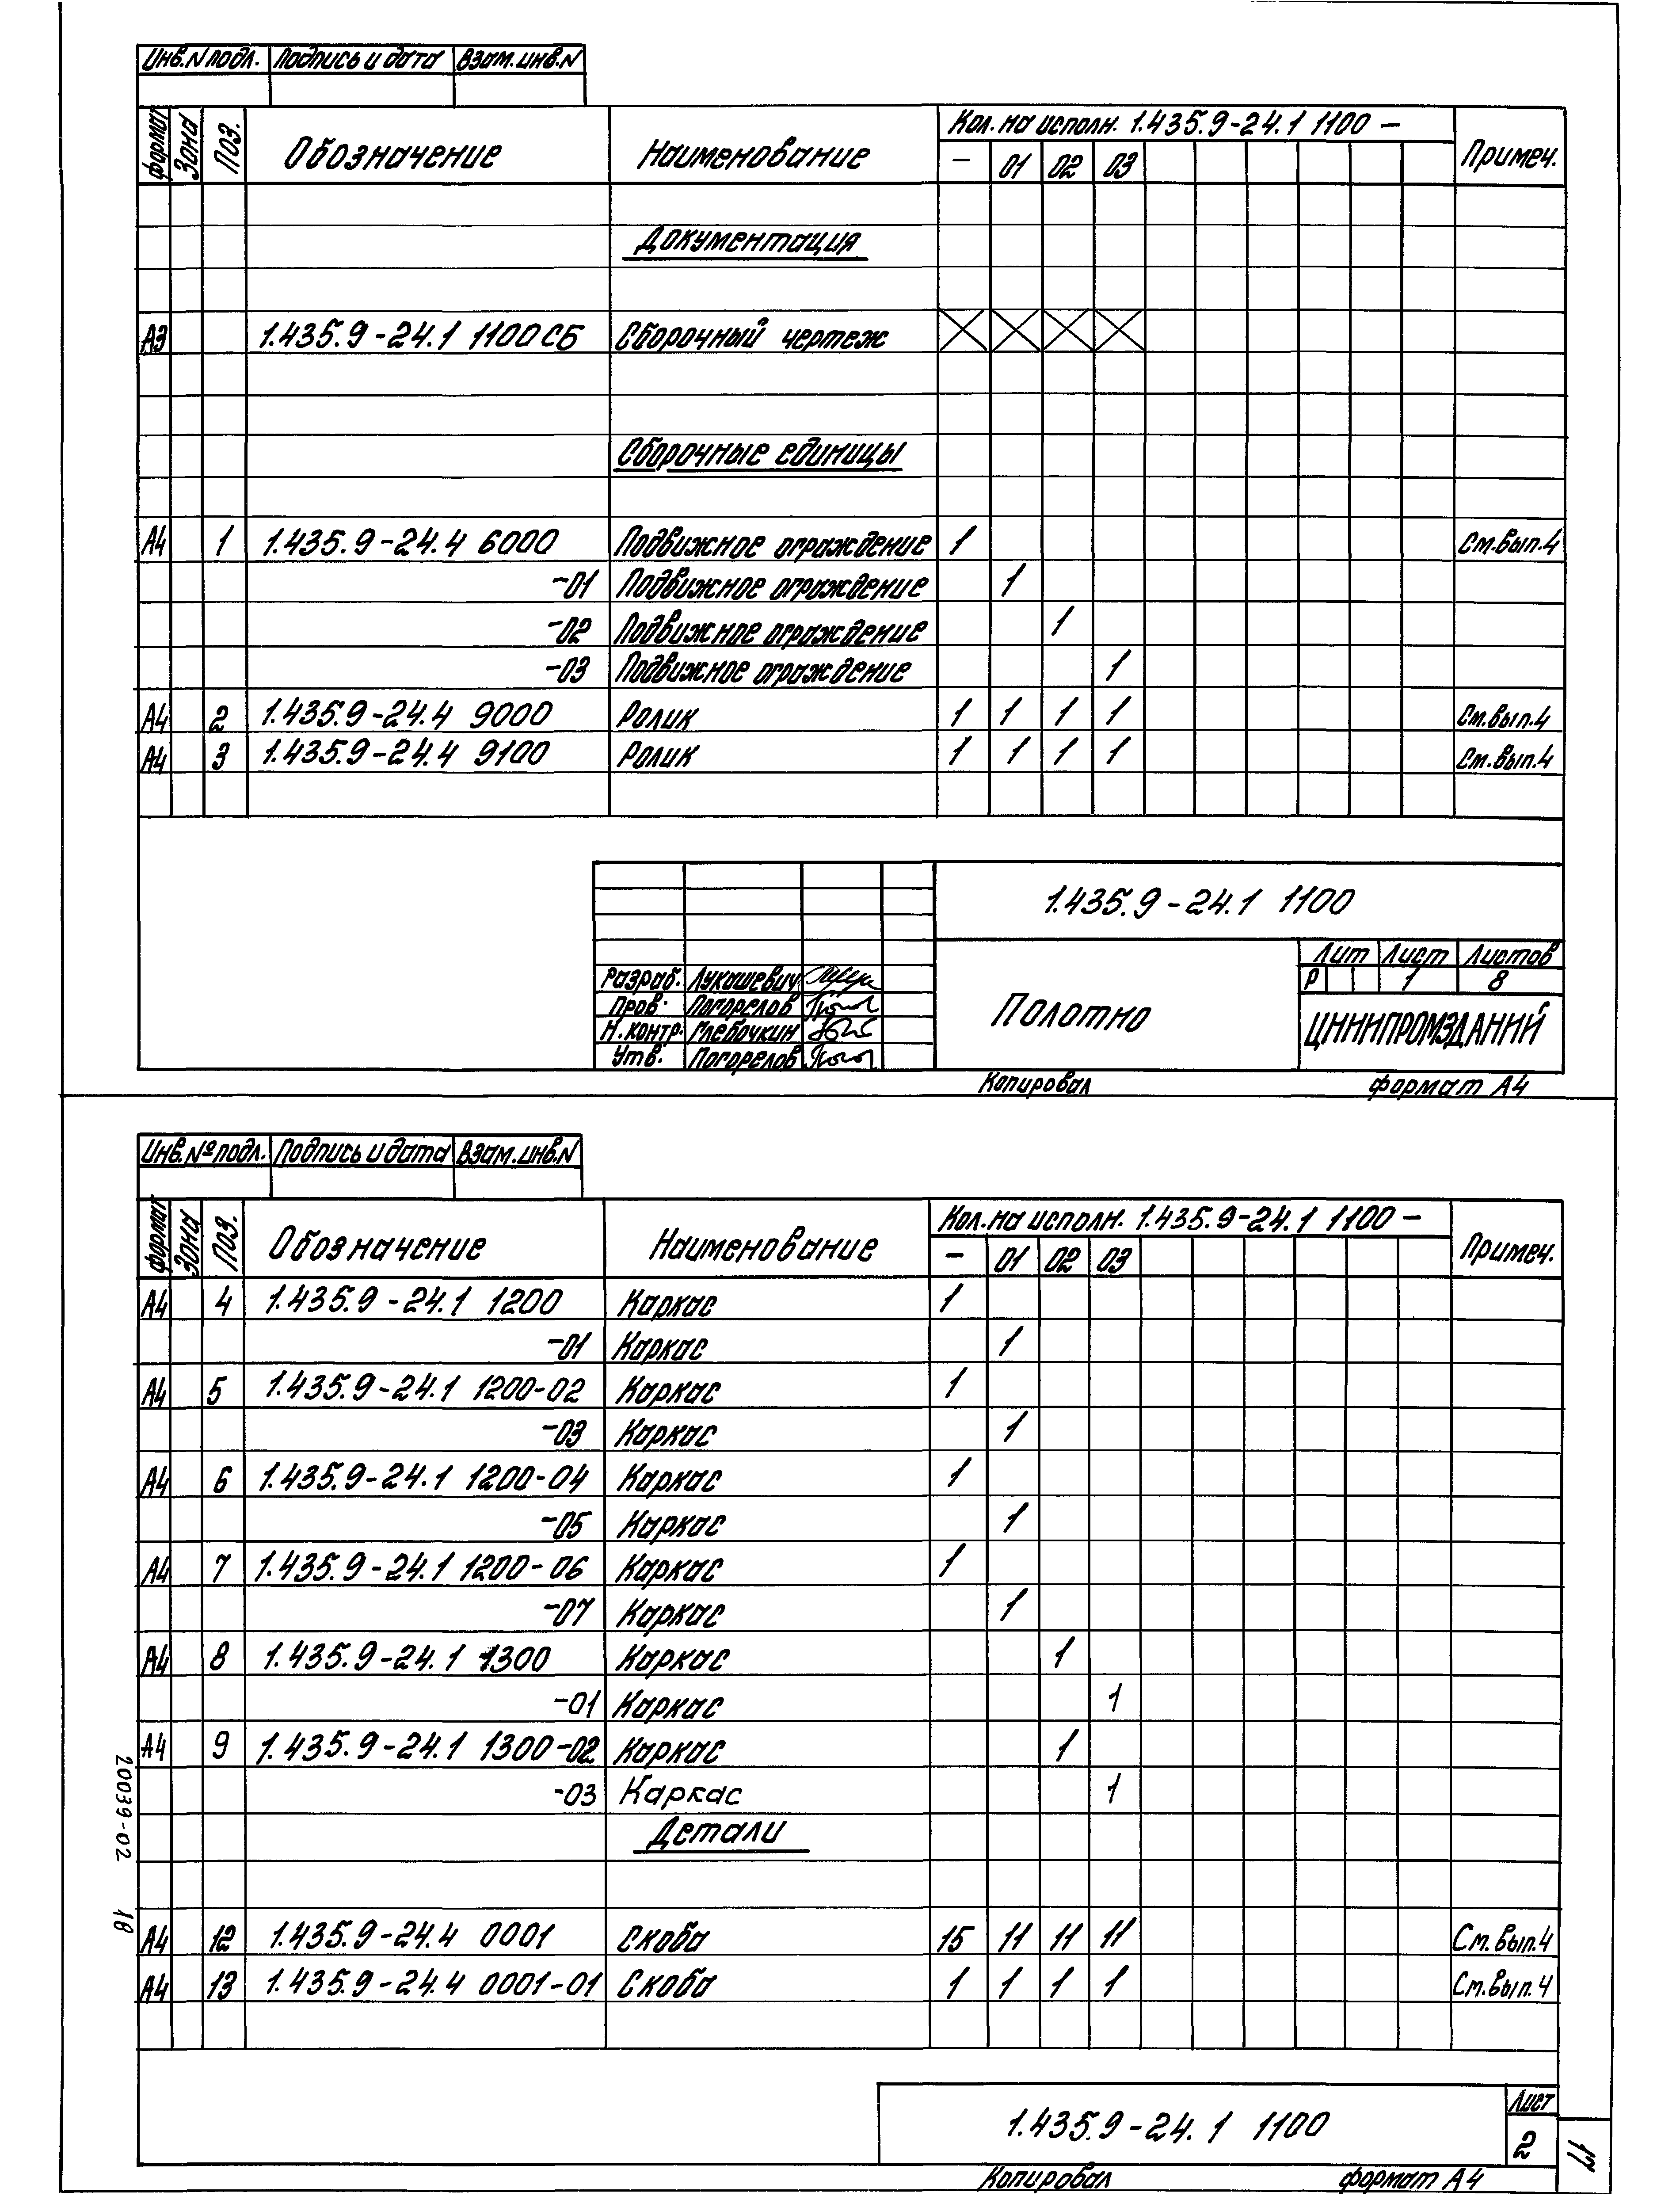 Инв.N подл. Подпись и дата Взам.инв.N
формат Зона Поз. Обозначение Наименование Кол. на исполн. 1.435.9-24.1 1100 — Примеч.
— 01 02 03
Документация
А3 1.435.9-24.1 1100СБ Сборочный чертеж
Сборочные единицы
А4 1 1.435.9-24.4 6000 Подвижное ограждение 1 См.вып.4
-01 Подвижное ограждение 1
-02 Подвижное ограждение 1
-03 Подвижное ограждение 1
А4 2 1.435.9-24.4 9000 Ролик 1 1 1 1 См.вып.4
А4 3 1.435.9-24.4 9100 Ролик 1 1 1 1 См.вып.4
1.435.9-24.1 1100
Лит Лист Листов
Р 1 8
Разраб. Лукашевич
Пров. Погорелов
Н.контр. Глебочкин
Утв. Погорелов
Полотно
ЦНИИПРОМЗДАНИЙ
Копировал формат А4
Инв.№ подл. Подпись и дата Взам.инв.N
формат Зона Поз. Обозначение Наименование Кол. на исполн. 1.435.9-24.1 1100 — Примеч.
— 01 02 03
А4 4 1.435.9-24.1 1200 Каркас 1
-01 Каркас 1
А4 5 1.435.9-24.1 1200-02 Каркас 1
-03 Каркас 1
А4 6 1.435.9-24.1 1200-04 Каркас 1
-05 Каркас 1
А4 7 1.435.9-24.1 1200-06 Каркас 1
-07 Каркас 1
А4 8 1.435.9-24.1 1300 Каркас 1
-01 Каркас 1
А4 9 1.435.9-24.1 1300-02 Каркас 1
-03 Каркас 1
Детали
А4 12 1.435.9-24.4 0001 Скоба 15 11 11 11 См.вып.4
А4 13 1.435.9-24.4 0001-01 Скоба 1 1 1 1 См.вып.4
20039-02 18
1.435.9-24.1 1100
Лист
2
17
Копировал формат А4